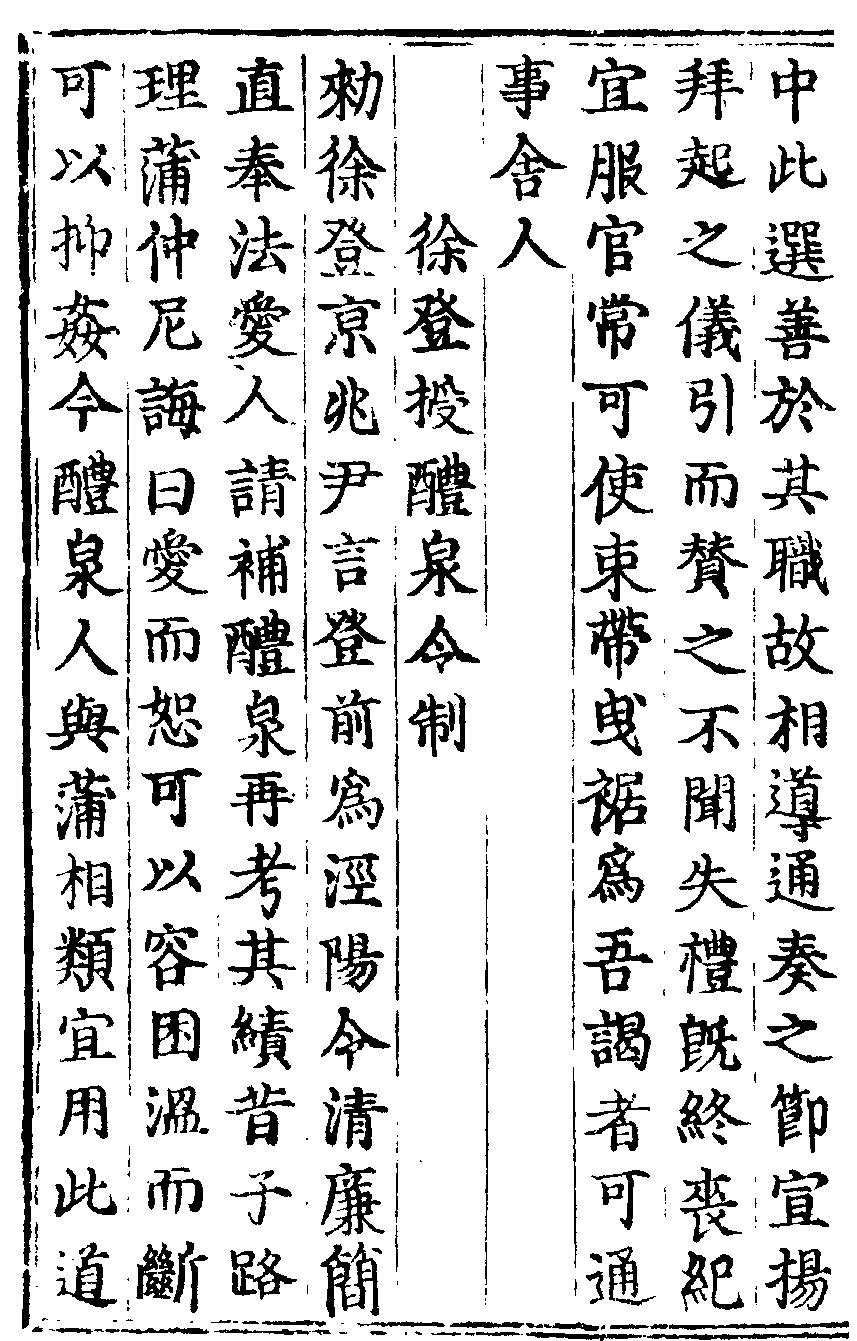 中此選善於其職故相導通奏之節宣揚
拜起之儀引而贊之不聞失禮旣終喪紀
宜服官常可使束帶曳裾爲吾謁者可通
事舍人
徐登授醴泉令制
勑徐登京兆尹言登前爲涇陽令清廉簡
直奉法愛人請補醴泉再考其績昔子路
理蒲仲尼誨曰愛而恕可以容困溫而斷
可以抑姦今醴泉人與蒲相類宜用此道